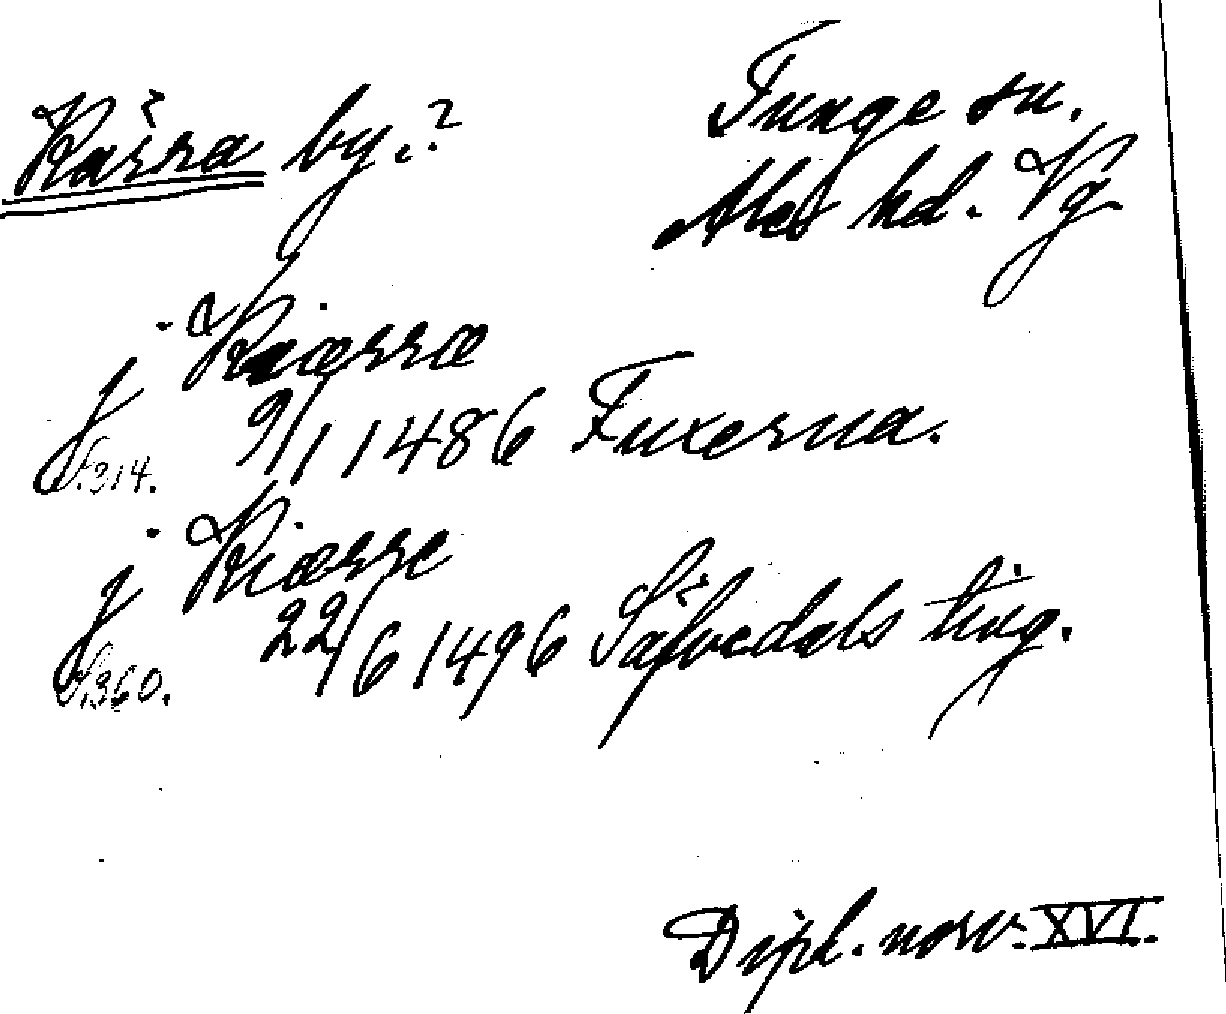 Kärra by.? Tunge sn.
Ales hd. Vg
j Kiærræ
S.314. 9/1 1486 Fuxerna.
j Kiærre
S.360. 22/6 1496 Säfvedals ting.
Dipl. norv. XVI.